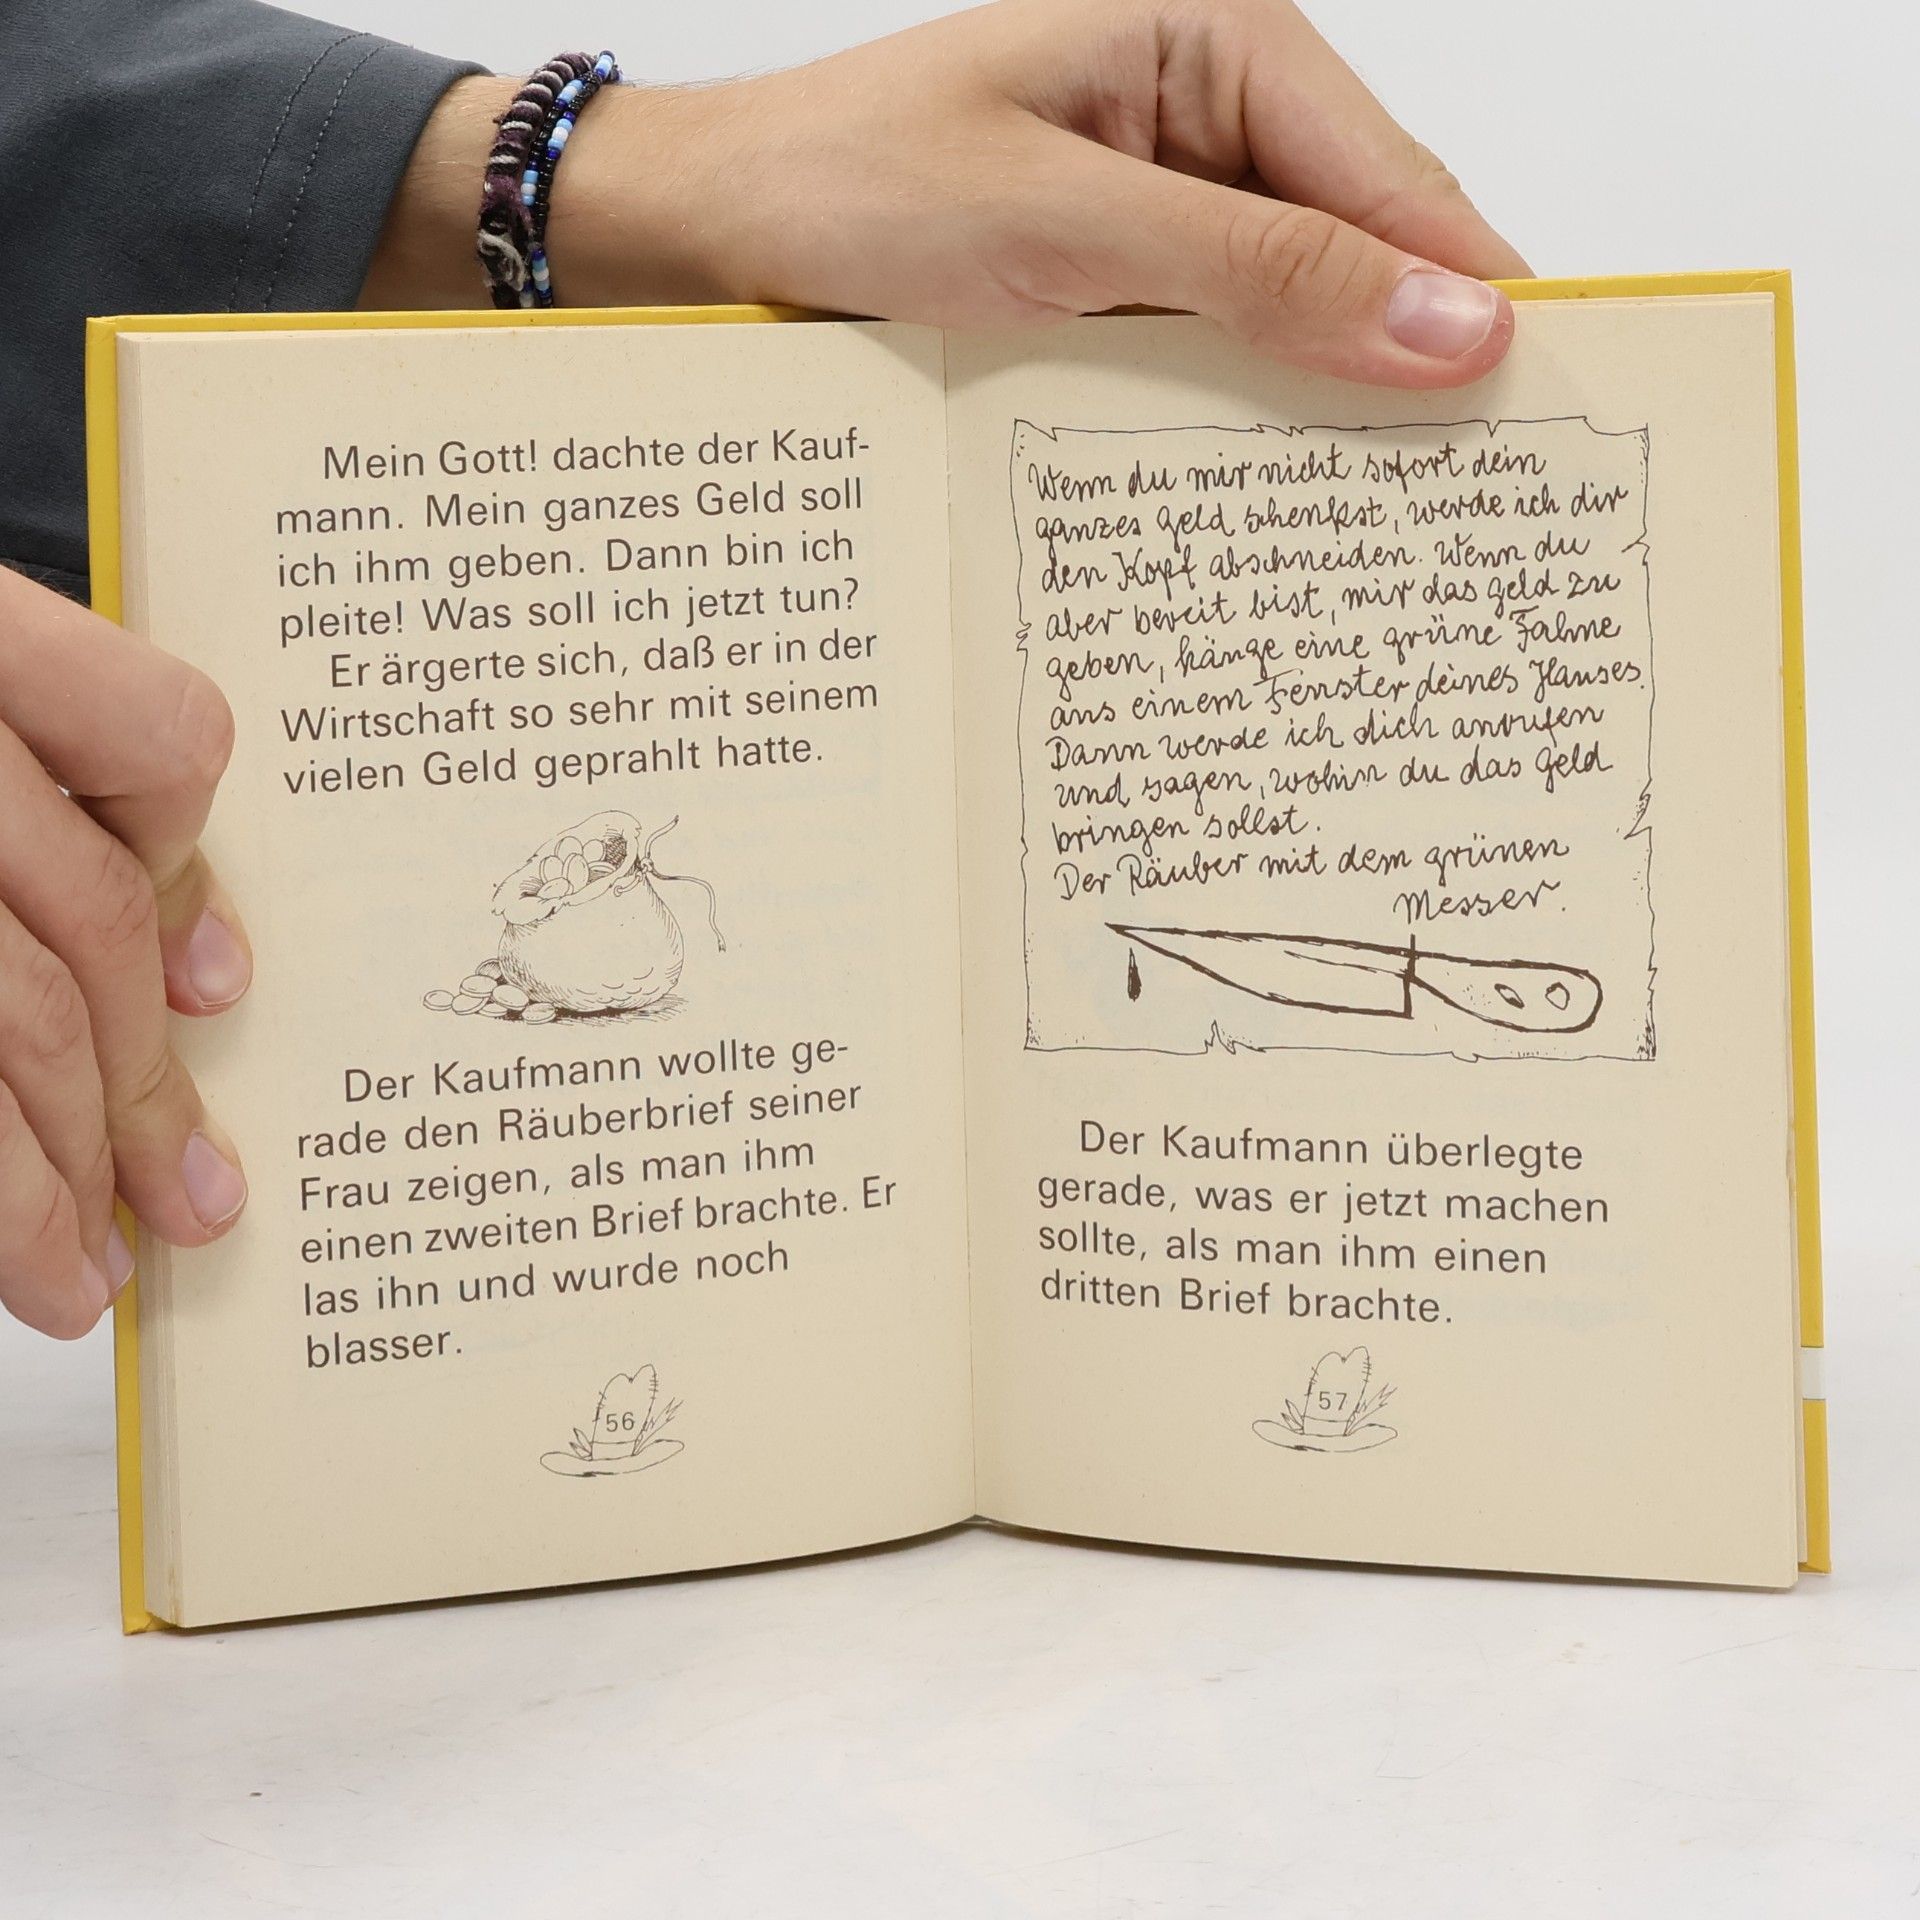 Mein Gott! dachte der Kauf-
mann. Mein ganzes Geld soll
ich ihm geben. Dann bin ich
pleite! Was soll ich jetzt tun?
Er ärgerte sich, daß er in der
Wirtschaft so sehr mit seinem
vielen Geld geprahlt hatte.
Der Kaufmann wollte ge-
rade den Räuberbrief seiner
Frau zeigen, als man ihm
einen zweiten Brief brachte. Er
las ihn und wurde noch
blasser.
56
Wenn du mir nicht sofort dein
ganzes Geld schenkst, werde ich dir
den Kopf abschneiden. Wenn du
aber bereit bist, mir das Geld zu
geben, hänge eine grüne Fahne
aus einem Fenster deines Hauses.
Dann werde ich dich anrufen
und sagen, wohin du das Geld
bringen sollst.
Der Räuber mit dem grünen
Messer.
Der Kaufmann überlegte
gerade, was er jetzt machen
sollte, als man ihm einen
dritten Brief brachte.
57